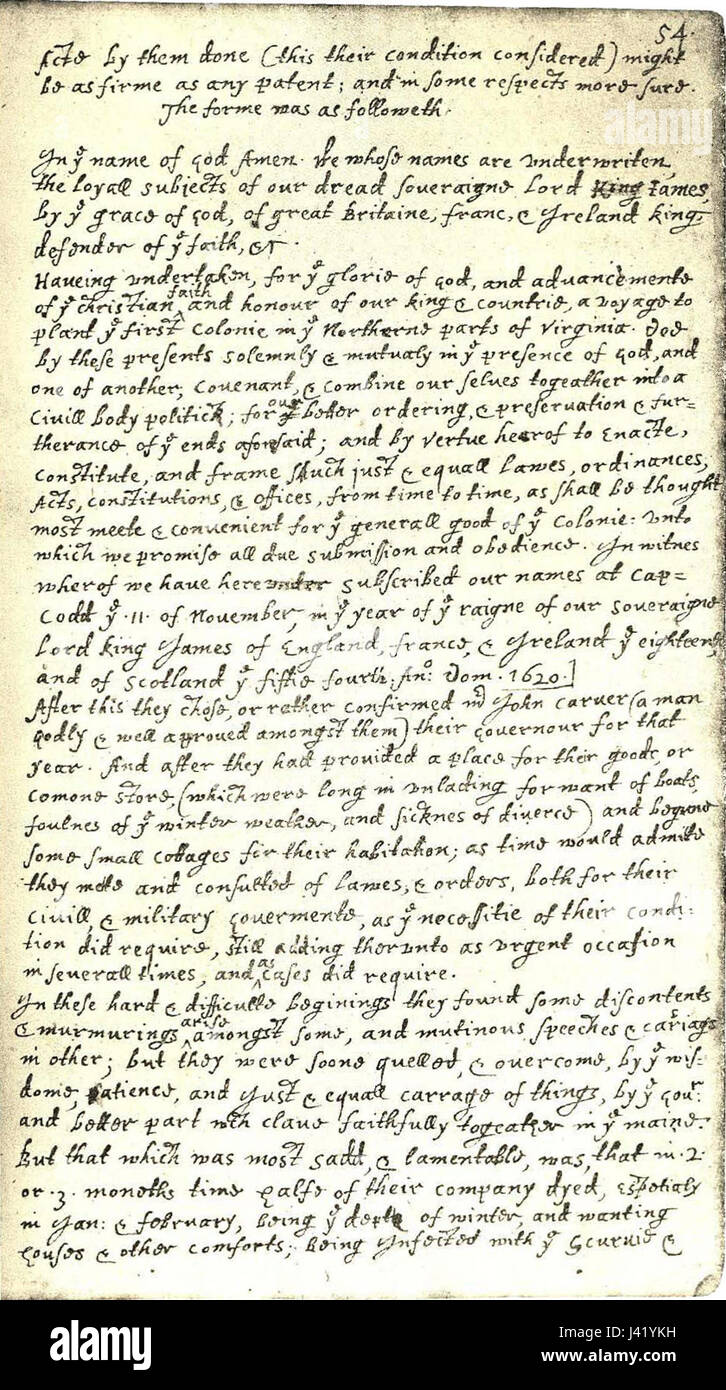 54.
Acte by them done (this their condition considered) might
be as firme as any patent; and in some respects more sure.
The forme was as followeth.
In yͤ name of God Amen. We whose names are underwriten,
the loyall subjects of our dread soveraigne Lord King James,
by yͤ grace of God, of great Britaine, franc, & Ireland king,
defender of yͤ faith, &c.
Haveing undertaken, for yͤ glorie of God, and advancemente
of yͤ christian ^faith and honour of our king & countrie, a voyage to
plant yͤ first colonie in yͤ Northerne parts of Virginia. Doe
by these presents solemnly & mutualy in yͤ presence of God, and
one of another, covenant, & combine our selves togeather into a
Civill body politick; for our better ordering, & preservation & fur=
therance of yͤ ends aforesaid; and by vertue hearof to Enacte,
constitute, and frame such just & equall Lawes, ordinances,
Acts, constitutions, & offices, from time to time, as shall be thought
most meete & convenient for yͤ generall good of yͤ Colonie: unto
which we promise all due submission and obedience. In witnes
wherof we have hereunder subscribed our names at Cap=
Codd yͤ .11. of November, in yͤ year of yͤ raigne of our soveraigne
Lord king James of England, france, & Ireland yͤ eighteenth
and of Scotland yͤ fiftie fourth. Anͦ: Dom. 1620.]
After this they chose, or rather confirmed mͬ John Carver (a man
godly & well approved amongst them) their Governour for that
year. And after they had provided a place for their goods, or
comone store, (which were long in unlading for want of boats,
foulnes of yͤ winter weather, and sicknes of diverce) and begune
some small cottages for their habitation; as time would admitte
they mette and consulted of lawes, & orders, both for their
civill, & military Govermente, as yͤ necessitie of their condi-
tion did require, still adding therunto as urgent occasion
in severall times, and ^as cases did require.
In these hard & difficulte beginings they found some discontents
& murmurings ^arise amongst some, and mutinous speeches & cariags
in other; but they were soone quelled, & overcome, by yͤ wis-
dome, patience, and just & equall carrage of things, by yͤ Govͬ.
and better part wch clave faithfully togeather in yͤ maine.
But that which was most sadd, & lamentable, was, that in .2.
or .3. moneths time halfe of their company dyed, espetialy
in Jan: & february, being yͤ depth of winter, and wanting
houses & other comforts; being Infected with yͤ Scurvie &
alamy
alamy
Image ID: J41YKH
www.alamy.com